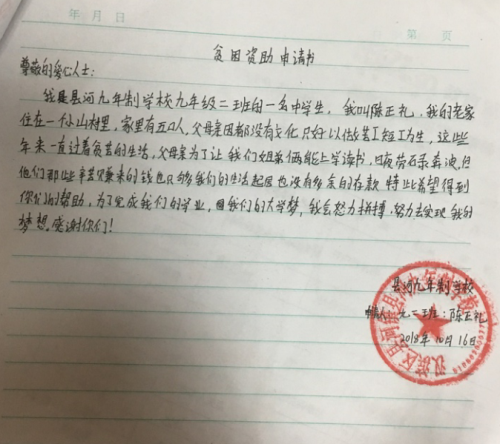 年 月 日
第 页
贫困资助申请书
尊敬的爱心人士:
我是县河九年制学校九年级二班的一名中学生。我叫陈正礼,我的老家
住在一个小山村里,家里有五口人,父母亲因都没有文化只好以做苦工短工为生,这些
年来一直过着贫苦的生活,父母亲为了让我们姐弟俩能上学读书,日夜劳碌奔波,但
他们那些辛苦赚来的钱也只够我们的生活起居也没有多余的存款 特此希望得到
你们的帮助,为了完成我们的学业,圆我们的大学梦,我会努力拼搏,努力去实现我的
梦想,感谢你们!
县河九年制学校
九二班:陈正礼
2018年10月16日